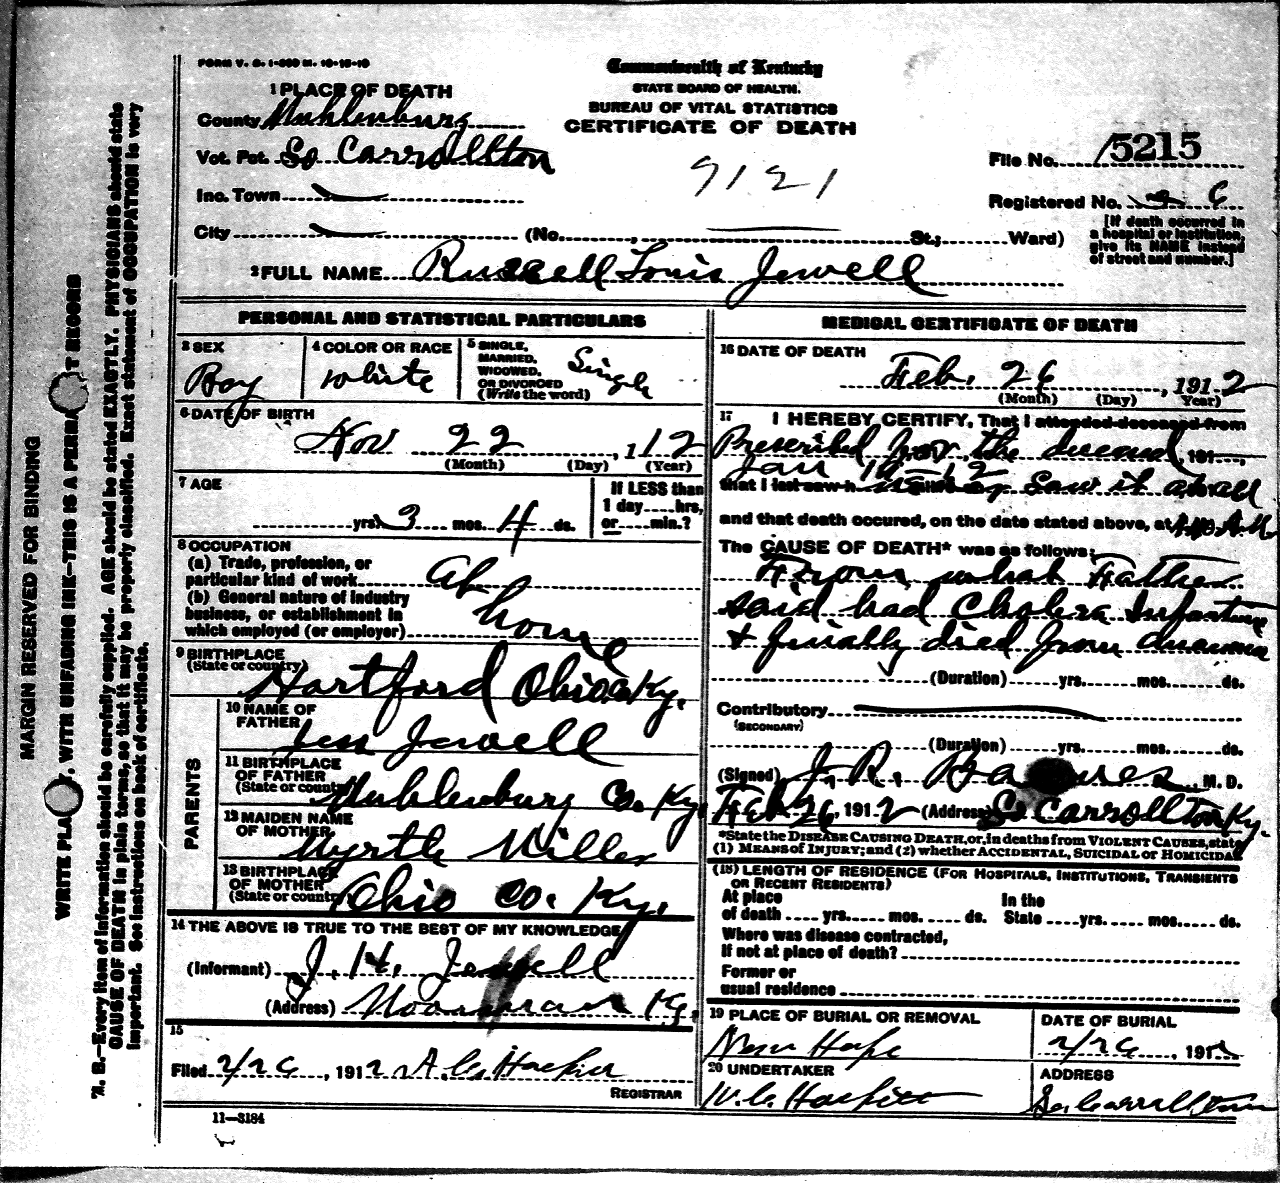 FORM V. S. 1-500 M. 10-15-10
Commonwealth of Kentucky
STATE BOARD OF HEALTH.
BUREAU OF VITAL STATISTICS
CERTIFICATE OF DEATH
1 PLACE OF DEATH
County Muhlenburg
Vot. Pct. So Carrollton
Inc. Town
City (No. , St.; Ward)
9121
File No. 15215
Registered No. 6
[If death occurred in
a hospital or institution,
give its NAME instead
of street and number.]
2 FULL NAME Russell Louis Jewell
PERSONAL AND STATISTICAL PARTICULARS
3 SEX
Boy
4 COLOR OR RACE
white
5 SINGLE,
MARRIED,
WIDOWED,
OR DIVORCED
(Write the word)
Single
6 DATE OF BIRTH
Nov 22, 112
(Month) (Day) (Year)
7 AGE
yrs. 3 mos. 4 ds.
If LESS than
1 day hrs,
or min.?
8 OCCUPATION
(a) Trade, profession, or
particular kind of work At
(b) General nature of industry
business, or establishment in
which employed (or employer) home
9 BIRTHPLACE
(State or country)
Hartford Ohio Ky.
PARENTS
10 NAME OF
FATHER
Jess Jewell
11 BIRTHPLACE
OF FATHER
(State or country)
Muhlenburg Co. Ky.
12 MAIDEN NAME
OF MOTHER
Myrtle Miller
13 BIRTHPLACE
OF MOTHER
(State or country)
Ohio Co. Ky.
14 THE ABOVE IS TRUE TO THE BEST OF MY KNOWLEDGE
(Informant) J. H. Jewell
(Address) Ky.
15
Filed 2/26, 1912 A.C.
REGISTRAR
11—3184
MEDICAL CERTIFICATE OF DEATH
16 DATE OF DEATH
Feb. 26, 1912
(Month) (Day) Year)
17
I HEREBY CERTIFY, That I attended deceased from
Prescribed for the deceased, 191
Jan 19-12
that I last saw h saw it at all
and that death occured, on the date stated above, at A.M.
The CAUSE OF DEATH* was as follows:
From what Father
said had Cholera Infantum
& finially died from
(Duration) yrs. mos. ds.
Contributory
(SECONDARY)
(Duration) yrs. mos. ds.
(Signed) J. R. M. D.
Feb 26, 1912 (Address) So Carrollton Ky.
*State the DISEASE CAUSING DEATH, or, in deaths from VIOLENT CAUSES, state
(1) MEANS OF INJURY; and (2) whether ACCIDENTAL, SUICIDAL OR HOMICIDAL
(18) LENGTH OF RESIDENCE (FOR HOSPITALS, INSTITUTIONS, TRANSIENTS
OR RECENT RESIDENTS)
At place In the
of death yrs. mos. ds. State yrs. mos. ds.
Where was disease contracted,
If not at place of death?
Former or
usual residence
19 PLACE OF BURIAL OR REMOVAL
New Hope
DATE OF BURIAL
2/26, 1912
20 UNDERTAKER
W.C.
ADDRESS
So Carrollton
MARGIN RESERVED FOR BINDING
WRITE PLAINLY, WITH UNFADING INK—THIS IS A PERMANENT RECORD
N. B.—Every item of information should be carefully supplied. AGE should be stated EXACTLY. PHYSICIANS should state
CAUSE OF DEATH in plain terms, so that it may be properly classified. Exact statement of OCCUPATION is very
important. See instructions on back of certificate.